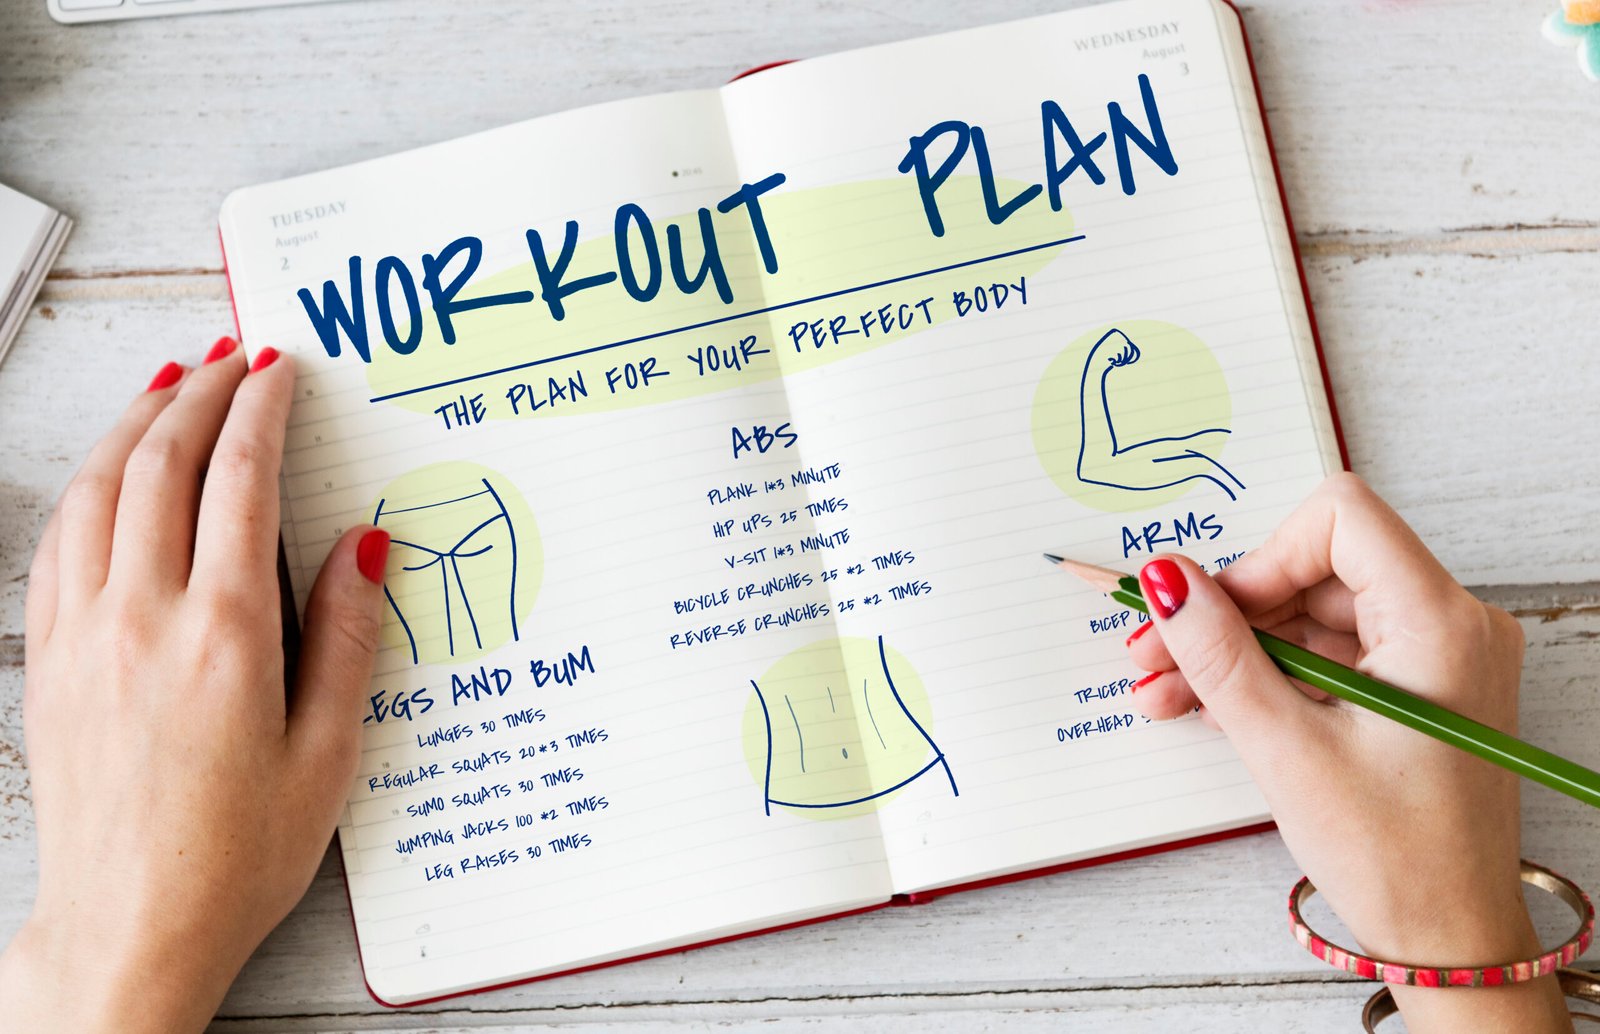 TUESDAY
August
2
WEDNESDAY
August
3
WORKOUT PLAN
THE PLAN FOR YOUR PERFECT BODY
LEGS AND BUM
LUNGES 30 TIMES
REGULAR SQUATS 20*3 TIMES
SUMO SQUATS 30 TIMES
JUMPING JACKS 100 *2 TIMES
LEG RAISES 30 TIMES
ABS
PLANK 1*3 MINUTE
HIP UPS 25 TIMES
V-SIT 1*3 MINUTE
BICYCLE CRUNCHES 25 *2 TIMES
REVERSE CRUNCHES 25 *2 TIMES
ARMS
BICEP
TRICEPS
OVERHEAD